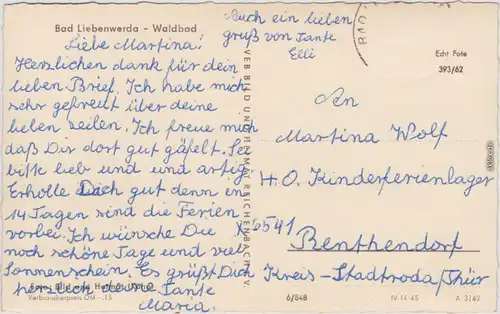 Bad Liebenwerda - Waldbad
Liebe Martina!
Herzlichen dank für dein
lieben Brief. Ich habe mich
sehr gefreut über deine
lieben zeilen. Ich freue mich
daß Dir dort gut gäfelt. Sei
bitte lieb und und artig.
Erholle Dich gut denn in
14 Tagen sind die Ferien
vorbei. Ich wünsche Die
noch schöne Tage und viel
Sonnenschein. Es grüßt Dich
herzlich Tante
Maria.
Auch ein lieben
gruß von Tante
Elli
VEB BILD UND HEIMAT REICHENBACH I. V.
BAD
Echt Foto
393/62
An
Martina Wolf
H.O. Kinderferienlager
X 6541
Renthendorf
Kreis-Stadtroda/Thür
Verbraucherpreis DM -.15
6/848
IV-14-45
A 3/62